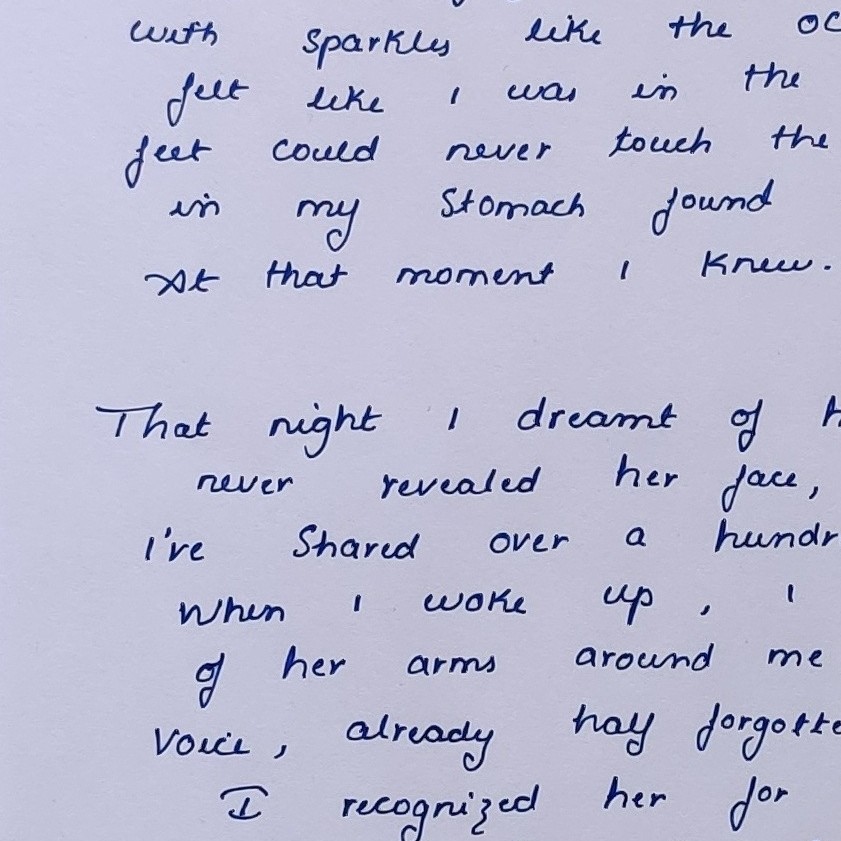 with sparkles like the oc
felt like I was in the
feet could never touch the
in my stomach found
At that moment I knew.
That night I dreamt of
never revealed her face,
I've shared over a hundr
When I woke up, I
of her arms around me
voice, already half forgotte
I recognized her for